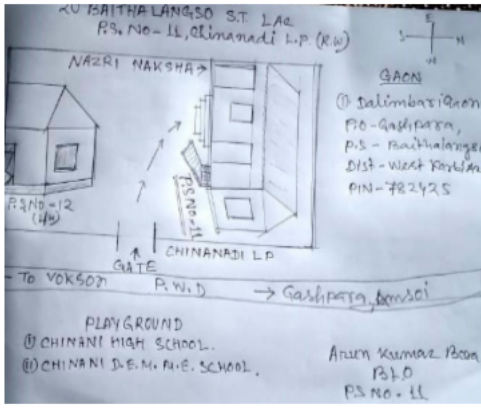 20 BAITHALANGSO S.T. LAC
P.S. NO-11, Chinanadi L.P. (R.W)
NAZRI NAKSHA
E
S
N
W
GAON
① Dalimbarigaon
P.O-Gashpara,
P.S - Baithalangso
Dist-West Karbi
PIN-782425
P.S NO-12
(L/W)
P.S NO-11
CHINANADI LP
GATE
- TO VOKSON P.W.D → Gashpara, Amsoi
PLAYGROUND
① CHINANI HIGH SCHOOL.
② CHINANI D.E.M. M.E. SCHOOL.
Arun Kumar Bora
BLO
P.S NO-11